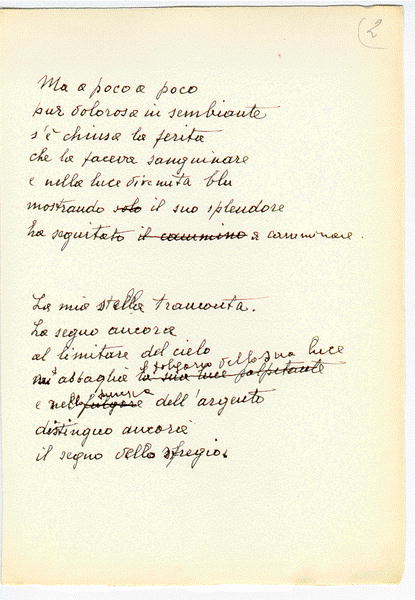 2
Ma a poco a poco
pur dolorosa in sembiante
s'è chiusa la ferita
che la faceva sanguinare
e nella luce divenuta blu
mostrando solo il suo splendore
ha seguitato il cammino a camminare.
La mia stella tramonta.
La seguo ancora
al limitare del cielo
il folgorio della sua luce
mi abbaglia la sua luce palpitante
e nel fulgore dell'argento
distinguo ancora
il segno dello sfregio.